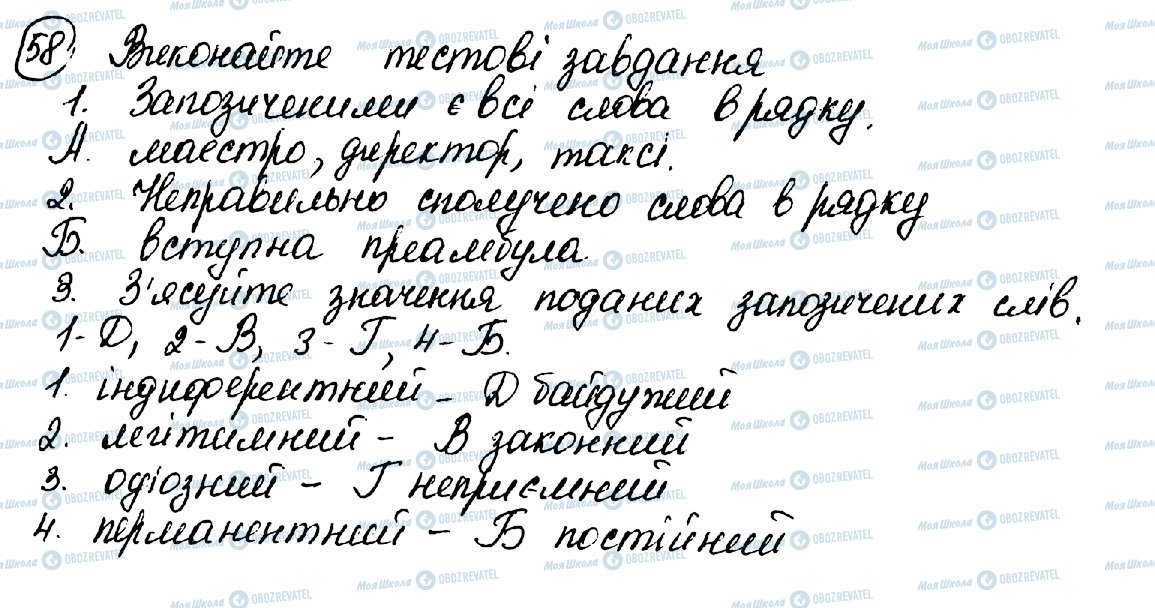 58. Виконайте тестові завдання
1. Запозиченими є всі слова в рядку.
А. маестро, директор, таксі.
2. Неправильно сполучено слова в рядку
Б. вступна преамбула.
3. З'ясуйте значення поданих запозичених слів.
1-Д, 2-В, 3-Г, 4-Б.
1. індиферентний - Д байдужий
2. легітимний - В законний
3. одіозний - Г неприємний
4. перманентний - Б постійний
Моя Школа OBOZREVATEL